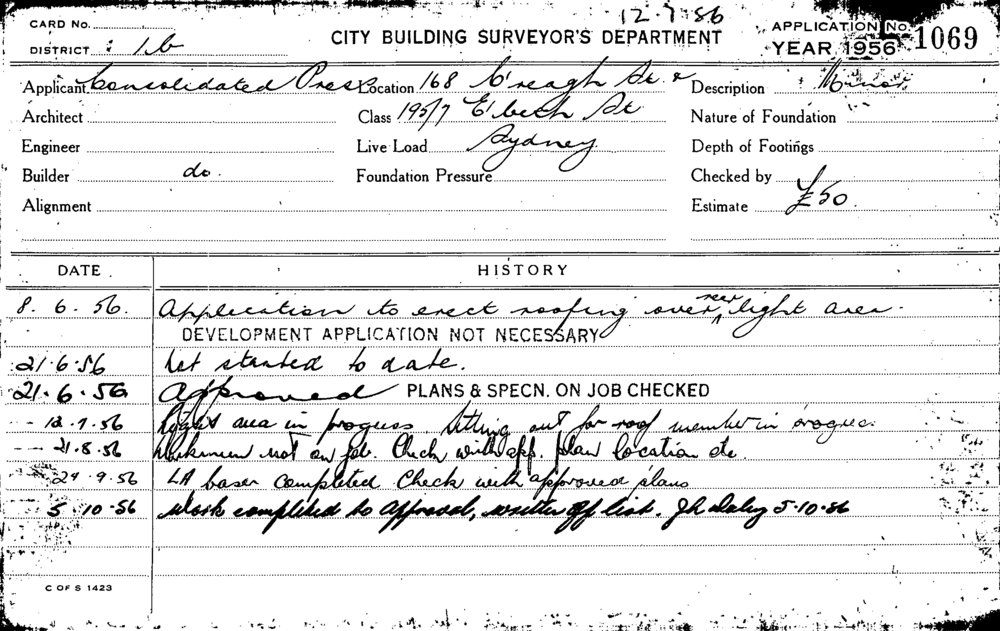 12.7.56
CARD No.
CITY BUILDING SURVEYOR'S DEPARTMENT
APPLICATION No. 1069
DISTRICT
YEAR 1956
Applicant Consolidated Press Location 168 C'reagh St & Description Minor
Architect Class 195/7 E'beth St Nature of Foundation
Engineer Live Load Sydney Depth of Footings
Builder do. Foundation Pressure Checked by
Alignment Estimate £50
DATE HISTORY
8. 6. 56. Application to erect roofing over rear light area.
DEVELOPMENT APPLICATION NOT NECESSARY
21.6.56 Not started to date.
21.6.56 Approved PLANS & SPECN. ON JOB CHECKED
12.7.56 Light area in progress. Setting out for roof member in progress.
21.8.56 Workmen not on job. Check with app. plan location etc.
24.9.56 LA completed Check with approved plans
5.10.56 Work completed to approval, written off list. 5.10.56
C OF S 1423